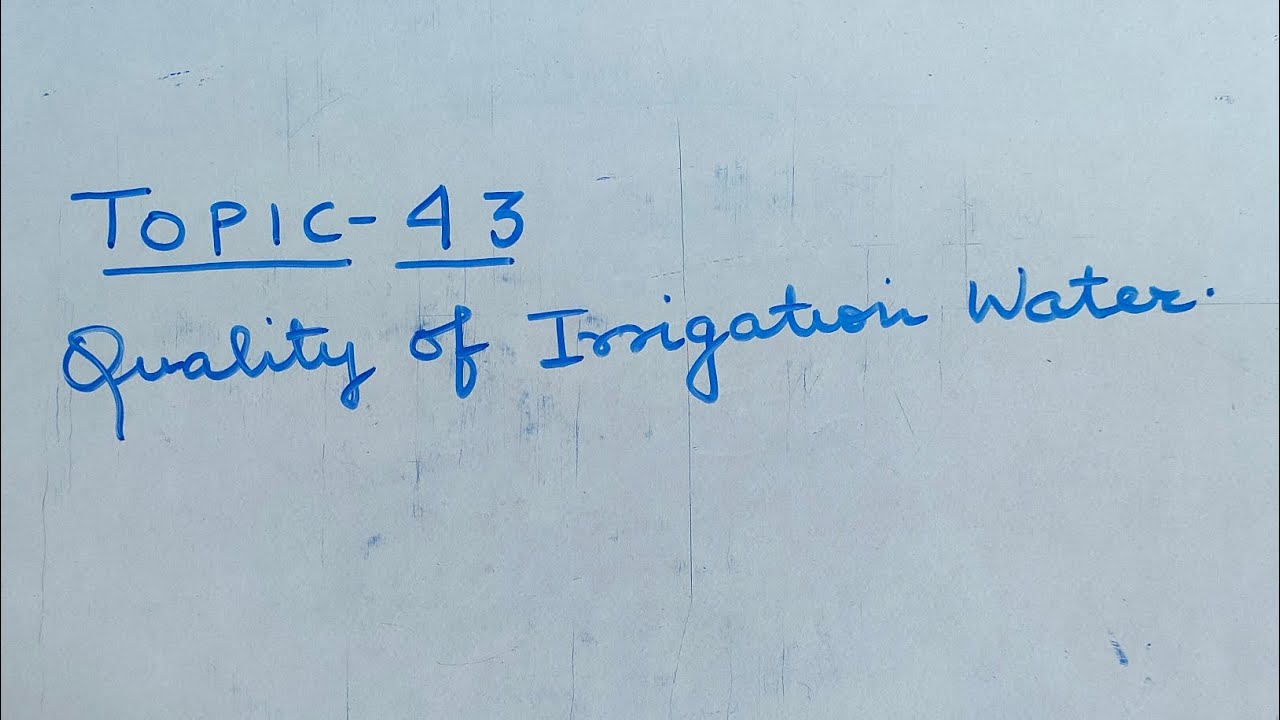 TOPIC-43
Quality of Irrigation Water.